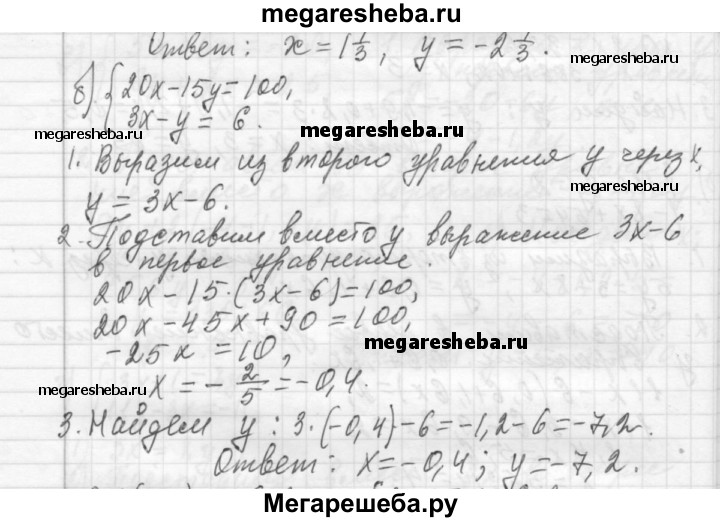 megaresheba.ru
Ответ: x = 1 1/3, y = -2 1/3.
megaresheba.ru
б) { 20x - 15y = 100,
3x - y = 6.
megaresheba.ru
megaresheba.ru
1. Выразим из второго уравнения y через x,
megaresheba.ru
y = 3x - 6.
2. Подставим вместо y выражение 3x - 6
в первое уравнение.
20x - 15·(3x - 6) = 100,
20x - 45x + 90 = 100,
megaresheba.ru
-25x = 10,
megaresheba.ru
x = - 2/5 = -0,4.
megaresheba.ru
3. Найдем y: 3·(-0,4) - 6 = -1,2 - 6 = -7,2.
Ответ: x = -0,4; y = -7,2.
Мегарешеба.ру